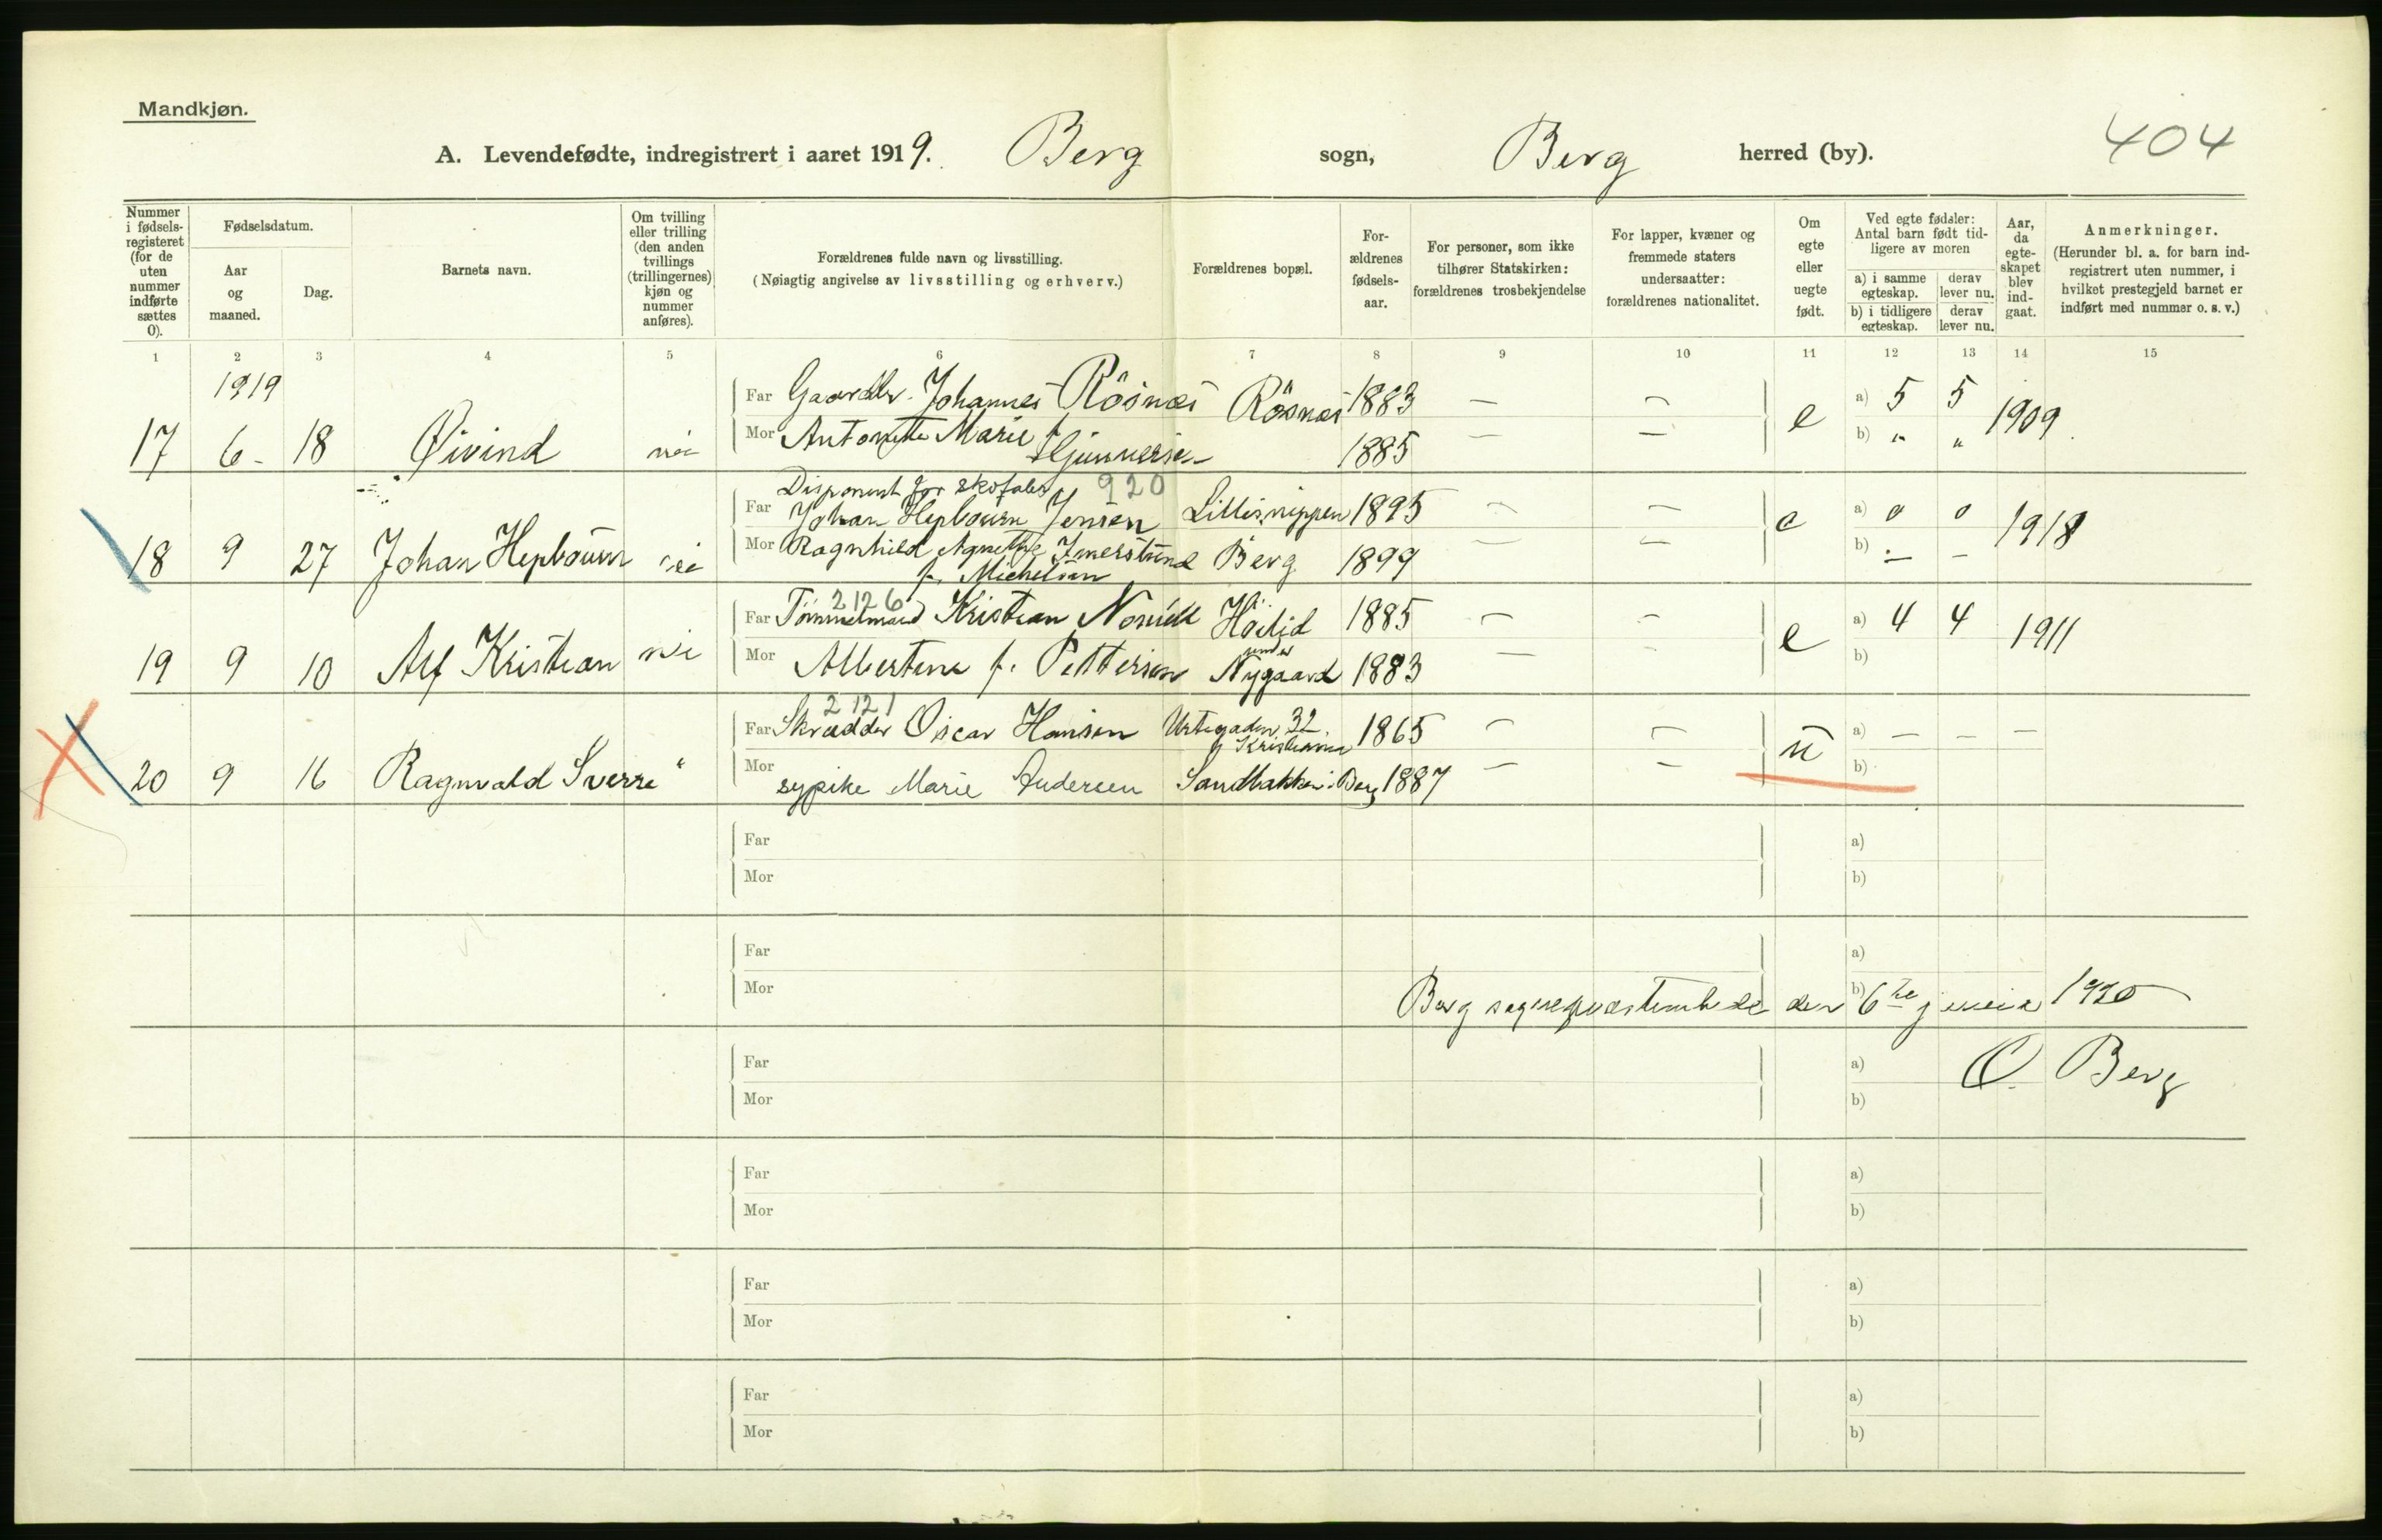 Mandkjøn.
404
A. Levendefødte, indregistrert i aaret 1919. Berg sogn, Berg herred (by).
Nummer i fødsels-registeret (for de uten nummer indførte sættes 0).
Fødselsdatum.
Aar og maaned.
Dag.
Barnets navn.
Om tvilling eller trilling (den anden tvillings (trillingernes) kjøn og nummer anføres).
Forældrenes fulde navn og livsstilling.
(Nøiagtig angivelse av livsstilling og erhverv.)
Forældrenes bopæl.
For-ældrenes fødsels-aar.
For personer, som ikke tilhører Statskirken: forældrenes trosbekjendelse
For lapper, kvæner og fremmede staters undersaatter: forældrenes nationalitet.
Om egte eller uegte født.
Ved egte fødsler: Antal barn født tid-ligere av moren
a) i samme egteskap.
derav lever nu.
b) i tidligere egteskap.
derav lever nu.
Aar, da egte-skapet blev ind-gaat.
Anmerkninger.
(Herunder bl. a. for barn ind-registrert uten nummer, i hvilket prestegjeld barnet er indført med nummer o. s. v.)
1 2 3 4 5 6 7 8 9 10 11 12 13 14 15
1919
Far Johannes Rösnæs Rösnæs 1883 — — a) 5 5
17 6 - 18 Øivind nei Mor Antonette Marie f. Gunnersen 1885 — — e b) " " 1909
Disponent for skofabr 920
Far Johan Hepbourn Jensen Lillesnippen 1895 — — a) 0 0
18 9 27 Johan Hepbourn nei Mor Ragnhild Agnethe Imerslund Berg 1899 — — e b) — — 1918
f. Michelsen
2126
Far Tømmermand Kristian Høilid 1885 — — a) 4 4
19 9 10 Alf Kristian nei Mor Albertine f. Pettersen under Nygaard 1883 — — e b) 1911
2121
Far Skrædder Oscar Hansen Urtegaden 32. Kristiania 1865 — — a) — — —
20 9 16 Ragnvald Sverre " Mor sypike Marie Andersen Sandbakken i Berg 1887 — — u b)
Far a)
Mor b)
Far a)
Mor b)
Berg sogneprestembede den 6te 1920
Far a)
O. Berg
Mor b)
Far a)
Mor b)
Far a)
Mor b)
Far a)
Mor b)